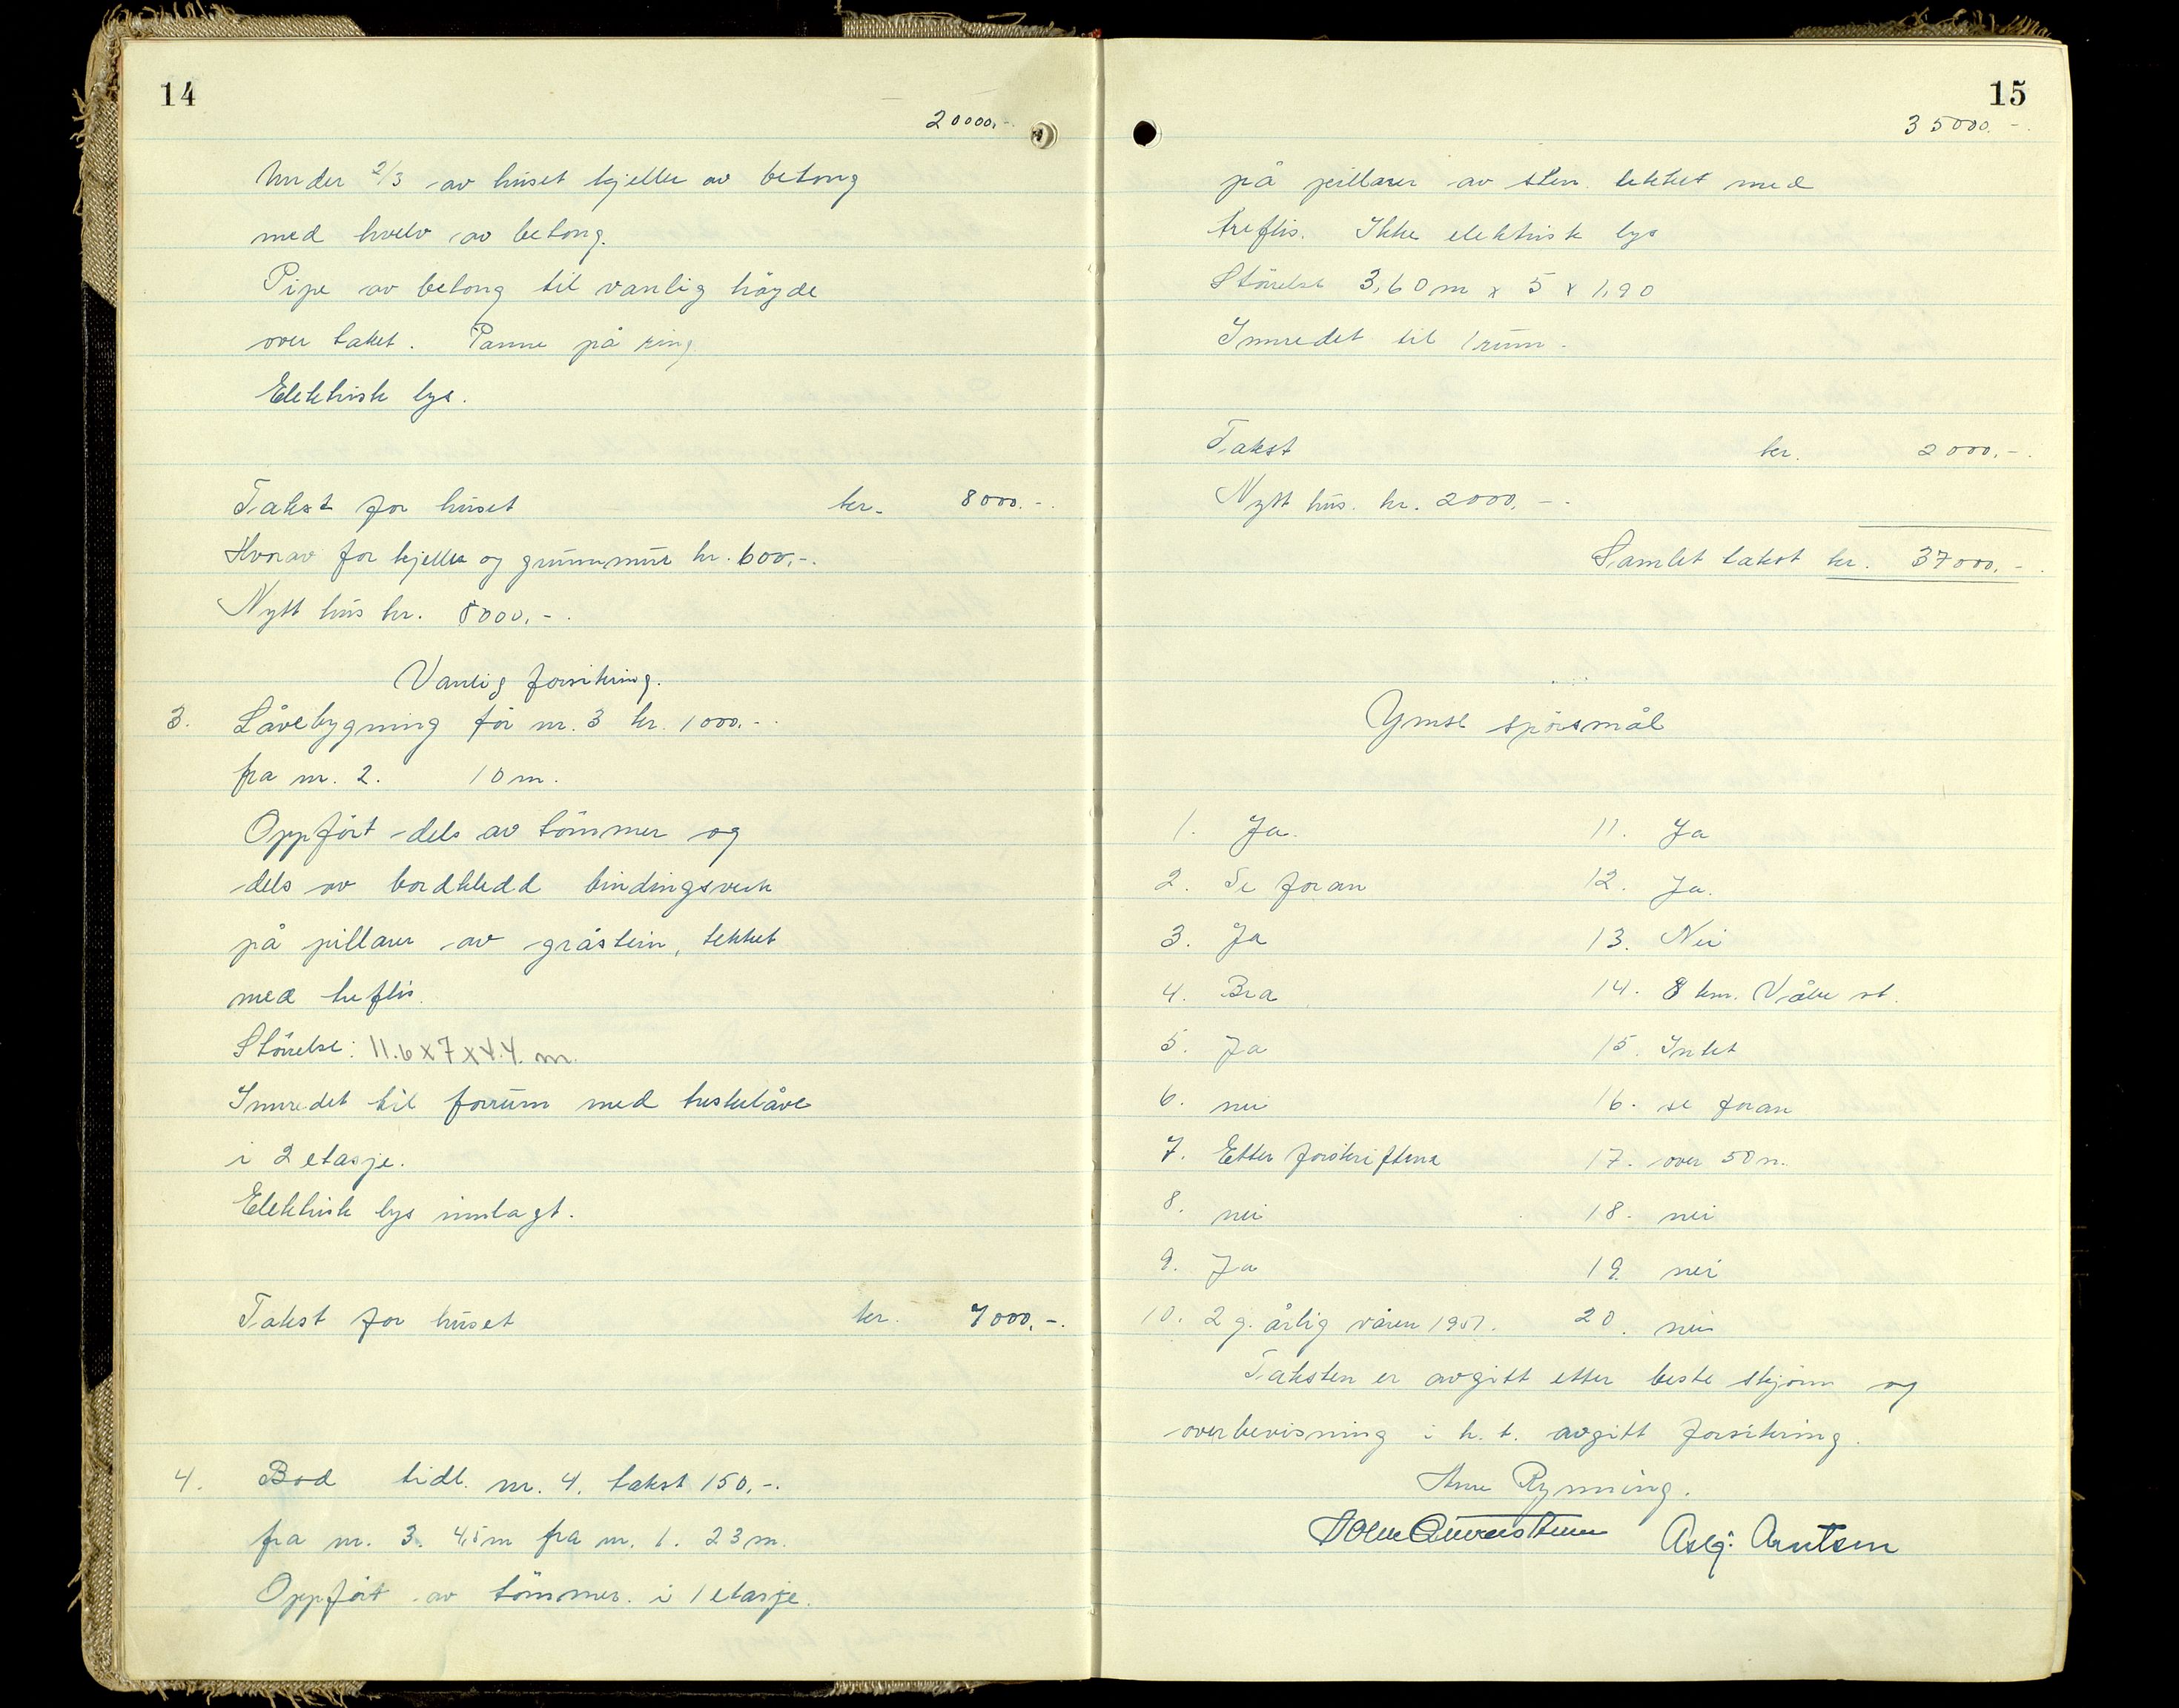 14
20000.-
Under 2/3 av huset kjeller av betong
med hvelv av betong.
Pipe av betong til vanlig höyde
over taket. Panne på ring
Elektrisk lys.
Takst for huset kr. 8000.-
Hvorav for kjeller og grunnmur kr. 600,-.
Nytt hus kr. 8000,-.
Vanlig forsikring.
3. Låvebygning för nr. 3 kr. 1000.-.
fra nr. 2. 10 m.
Oppfört dels av tömmer og
dels av bordkledd bindingsverk
på pillarer av gråstein, tekket
med treflis.
Störrelse: 11.6 x 7 x 4.4. m.
Innredet til forrum med treskelåve
i 2 etasje.
Elektrisk lys innlagt.
Takst for huset kr. 7000,-.
4. Bod tidl. nr. 4. takst 150,-.
fra nr. 3. 4,5 m fra nr. 1. 23 m.
Oppfört av tömmer i 1 etasje.
15
35000.-.
på pillarer av sten tekket med
treflis. Ikke elektrisk lys
Störrelse 3,60 m x 5 x 1,90
Innredet til 1 rum.
Takst kr. 2000.-.
Nytt hus. kr. 2000,-.
Samlet takst kr. 37000.-.
Ymse spörsmål
1. Ja. 11. Ja
2. Se foran 12. Ja.
3. Ja 13. Nei
4. Bra 14. 8 km. Våler st.
5. Ja 15. Intet
6. nei 16. se foran
7. Etter forskriftene 17. over 50 m.
8. nei 18. nei
9. Ja 19. nei
10. 2 g. årlig våren 1951. 20. nei
Taksten er avgitt etter beste skjönn og
overbevisning i h. t. avgitt forsikring.
Arne Rynning.
Aslg: Arntsen